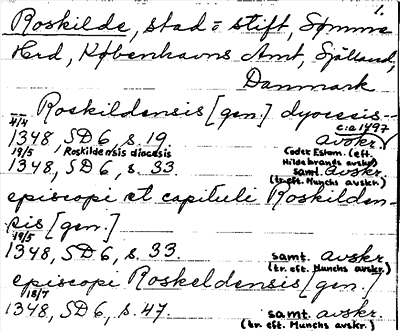 1.
Roskilde, stad = stift, Sømme
Herd, Københavns Amt, Själland,
Danmark
Roskildensis [gen.] dyocesis -
4/4 c:a 1497
1348, SD 6, s. 19. avskr.
19/5 Roskildensis diocesis Codex Eslom. (eft.
Hildebrands avskr.)
1348, SD 6, s. 33. samt. avskr.
(tr. eft. Munchs avskr.)
episcopi et capituli Roskilden-
sis [gen.]
19/5
1348, SD 6, s. 33. samt. avskr.
(tr. eft. Munchs avskr.)
episcopi Roskeldensis [gen.]
18/7
1348, SD 6, s. 47. samt. avskr.
(tr. eft. Munchs avskr.)